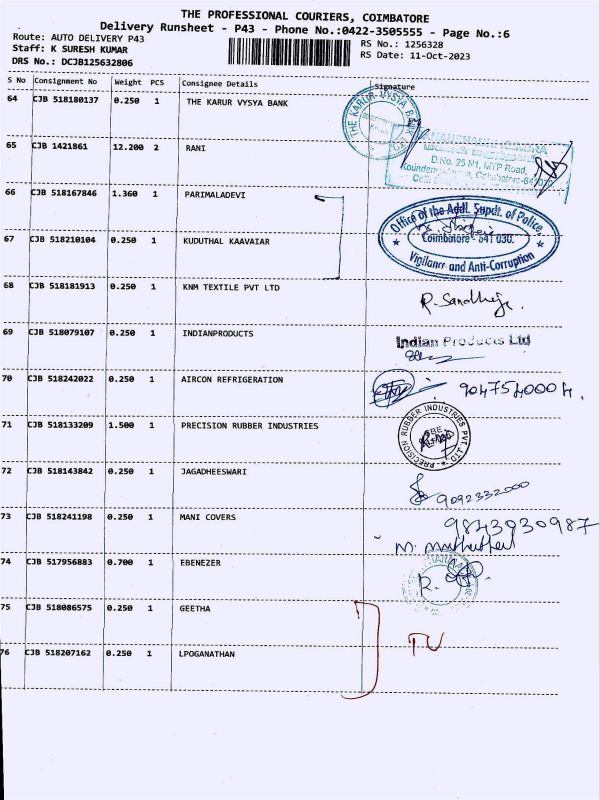 THE PROFESSIONAL COURIERS, COIMBATORE
Delivery Runsheet - P43 - Phone No.:0422-3505555 - Page No.:6
Route: AUTO DELIVERY P43
RS No.: 1256328
Staff: K SURESH KUMAR
RS Date: 11-Oct-2023
DRS No.: DCJB125632806
S No Consignment No Weight PCS Consignee Details Signature
64 CJB 518180137 0.250 1 THE KARUR VYSYA BANK
THE KARUR VYSYA BANK
65 CJB 1421861 12.200 2 RANI
D.No. 23 N1, MTP Road,
66 CJB 518167846 1.360 1 PARIMALADEVI
Office of the Addl. Supdt. of Police,
67 CJB 518210104 0.250 1 KUDUTHAL KAAVAIAR
Coimbatore - 641 030.
Vigilance and Anti-Corruption
68 CJB 518181913 0.250 1 KNM TEXTILE PVT LTD
R. Sandhiya
69 CJB 518079107 0.250 1 INDIANPRODUCTS
Indian Products Ltd
70 CJB 518242022 0.250 1 AIRCON REFRIGERATION
71 CJB 518133209 1.500 1 PRECISION RUBBER INDUSTRIES
PRECISION RUBBER INDUSTRIES PVT. LTD
72 CJB 518143842 0.250 1 JAGADHEESWARI
9092332000
73 CJB 518241198 0.250 1 MANI COVERS
9843930987
74 CJB 517956883 0.700 1 EBENEZER
75 CJB 518086575 0.250 1 GEETHA
TV
76 CJB 518207162 0.250 1 LPOGANATHAN